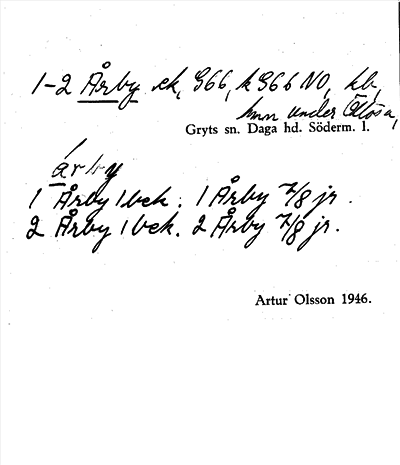 1-2 Årby ek, G66, k G66 NO, kb,
hmn under Ökösa,
Gryts sn. Daga hd. Söderm. l.
årby
1 Årby 1 bek. 1 Årby 7/8 jr.
2 Årby 1 bek. 2 Årby 7/8 jr.
Artur Olsson 1946.